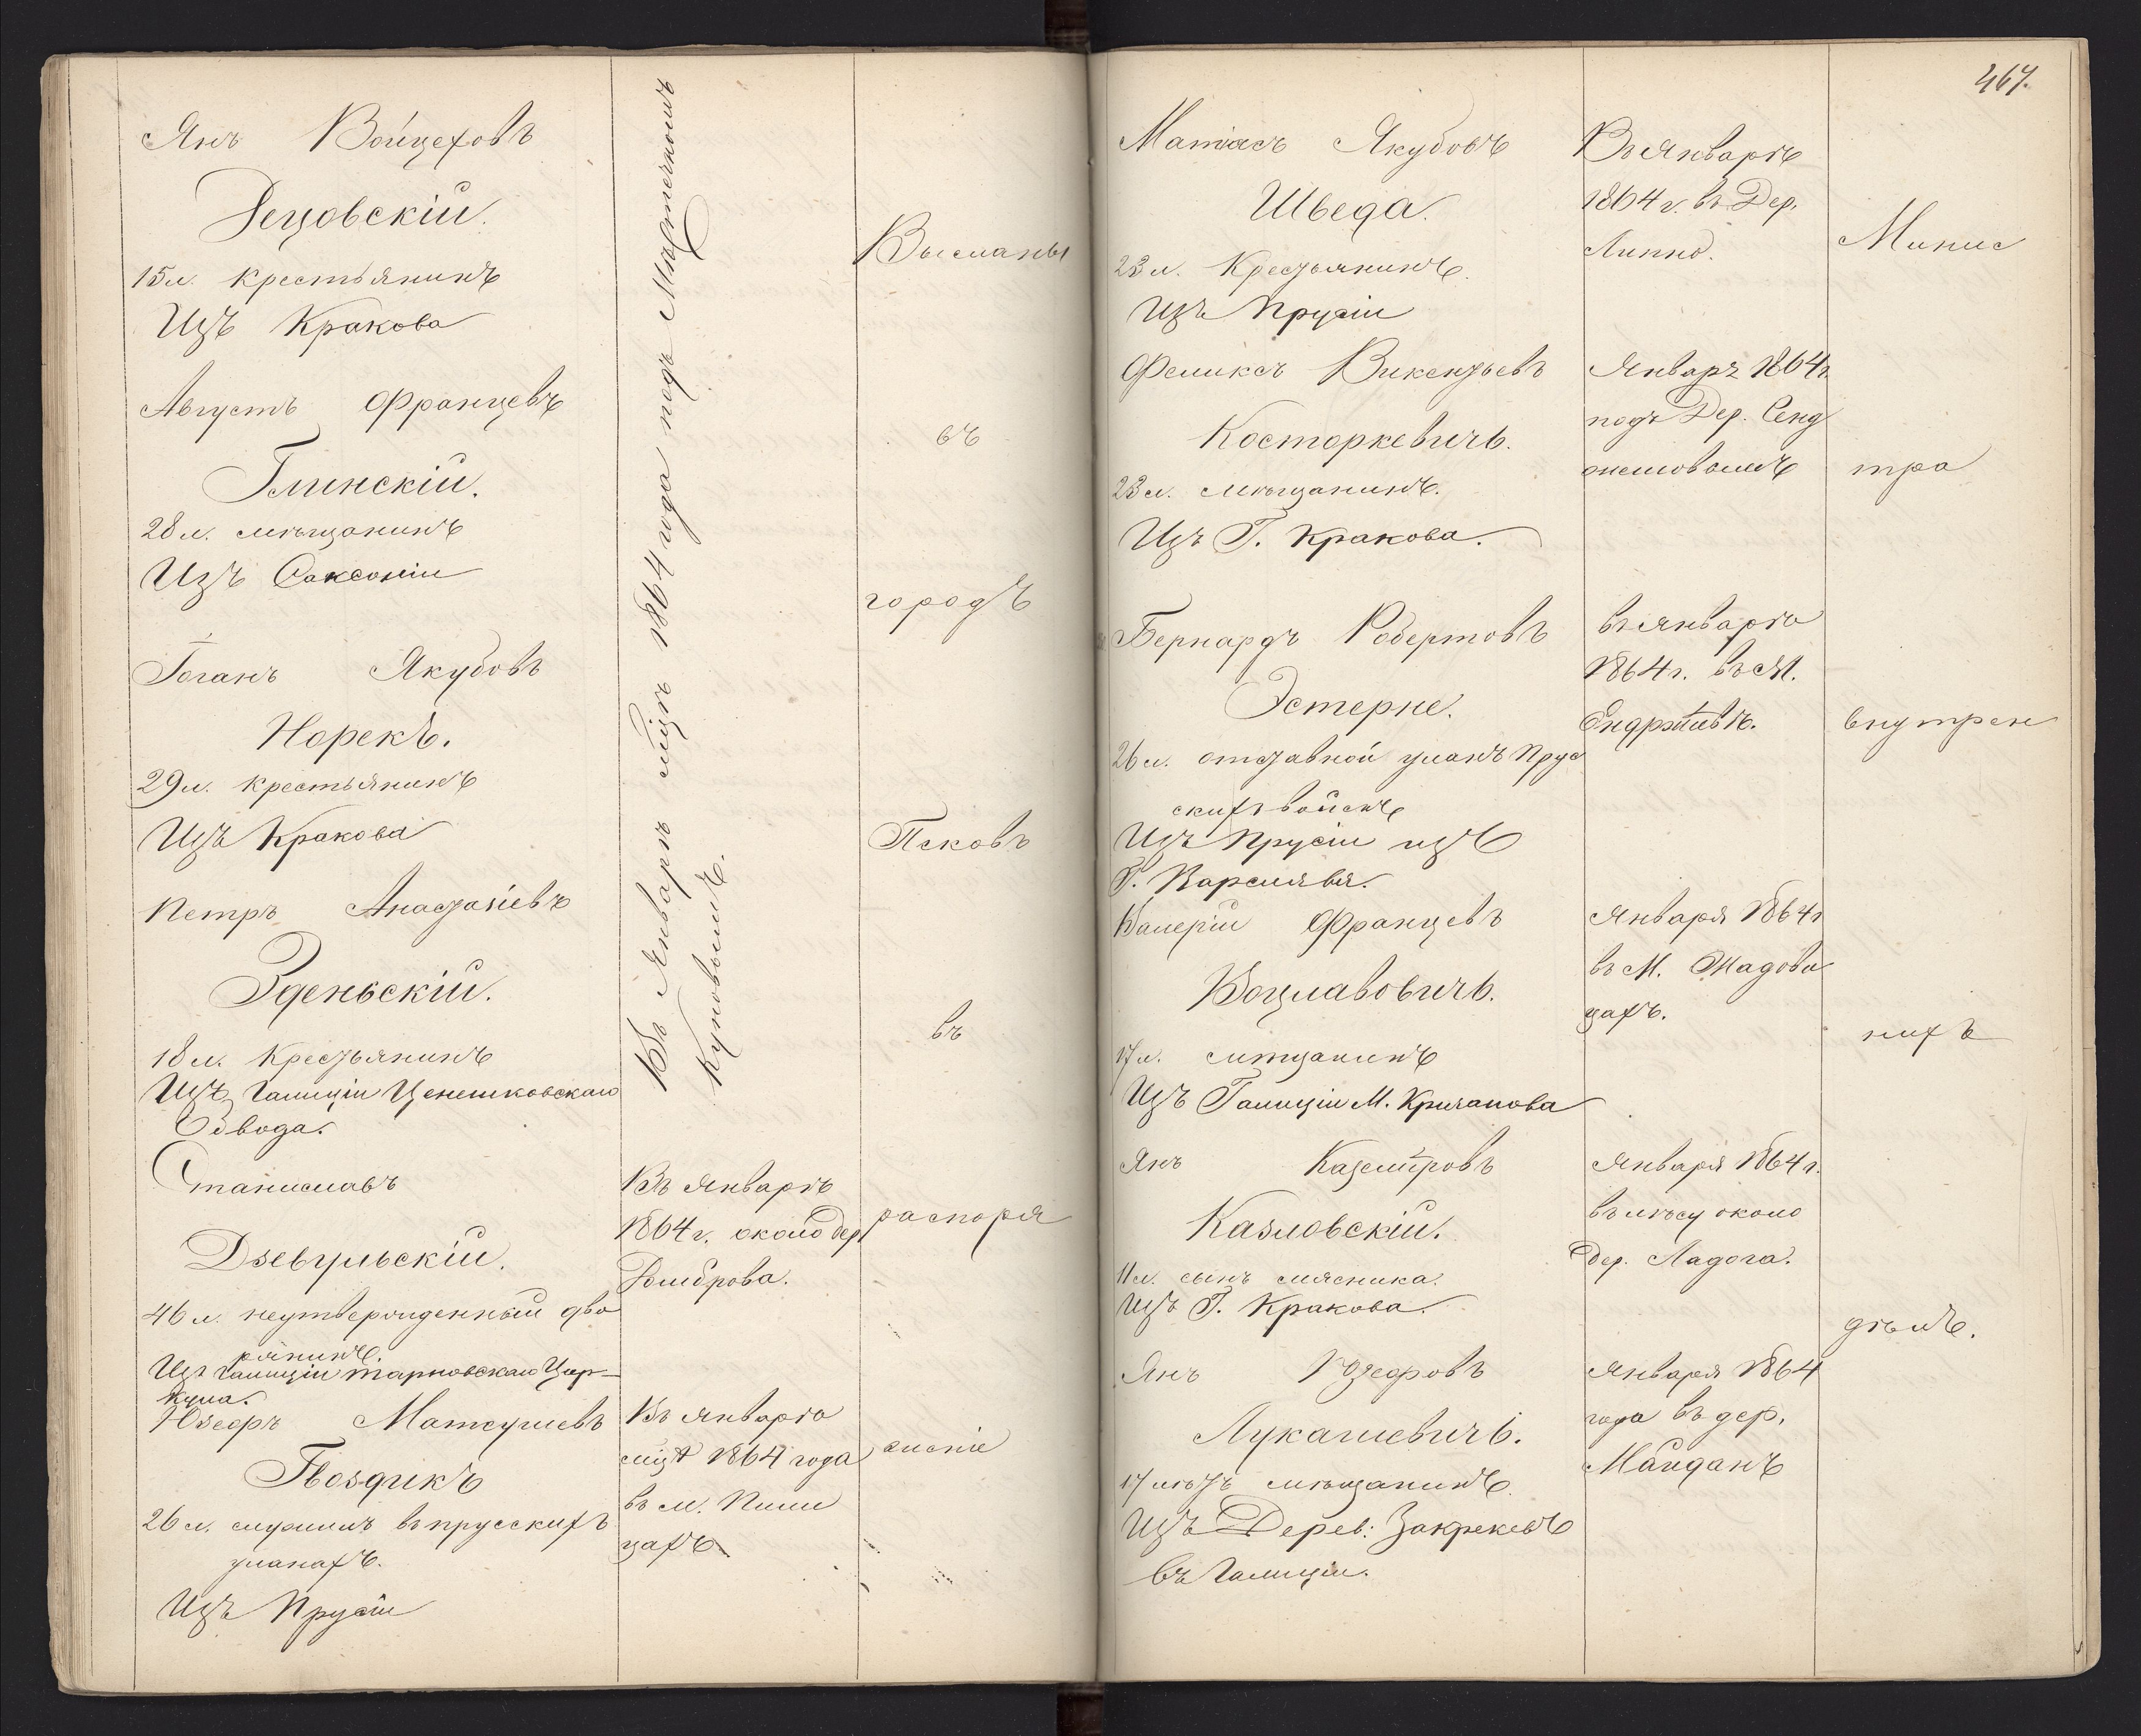 Янъ Войцеховъ
Децовскій.
15 л. крестьянинъ
Изъ Кракова
Августъ Францевъ
Глинскій.
28 л. мѣщанинъ
Изъ Саксоніи
Іоганъ Якубовъ
Норекъ.
29 л. крестьянинъ
Изъ Кракова
Петръ Анастасіевъ
Зденьскій.
18 л. Крестьянинъ
Изъ Галиціи
Обвода.
Станиславъ
Дзевульскій.
46 л. неутвержденный дво
рянинъ.
Изъ Галиціи Тарновскаго Цир-
кула.
Юзефъ Матеушевъ
Гвоздикъ
26 л. служилъ въ прусскихъ
уланахъ.
Изъ Прусіи
Въ Январѣ мцѣ 1864 года подъ Мѣстечкомъ
Куновымъ.
Въ Январѣ
1864 г. около дер
Домброва.
Въ январѣ
мцѣ 1864 года
въ м. Пили
цахъ
Высланы
въ
городъ
Псковъ
въ
распоря
женіе
467.
Матіасъ Якубовъ
Шведа.
23 л. Крестьянинъ.
Изъ Прусіи
Феликсъ Викентьевъ
Косторкевичъ.
23 л. мѣщанинъ.
Изъ Г. Кракова.
Бернардъ Робертовъ
Эстерне.
26 л. отставной уланъ Прус
скихъ войскъ
Изъ Прусіи изъ
Г.
Валерій Францевъ
Воцлавовичъ.
17 л. мѣщанинъ
Изъ Галиціи М.
Янъ Каземіровъ
Казловскій.
11 л. сынъ мясника.
Изъ Г. Кракова.
Янъ Юзефовъ
Лукашевичъ.
17 лѣтъ мѣщанинъ.
Изъ Дерев:
въ Галиціи.
Въ Январѣ
1864 г. въ Дер.
Липно.
Январъ 1864 г.
подъ Дер. Сенд
жешовомъ
въ январѣ
1864 г. въ М.
Ендржіевѣ.
Января 1864 г
въ М. Жадови
цахъ.
Января 1864 г.
въ лѣсу около
дер. Ладога.
Января 1864
года въ дер.
Майданъ
Минис
тра
внутрен
нихъ
дѣлъ.